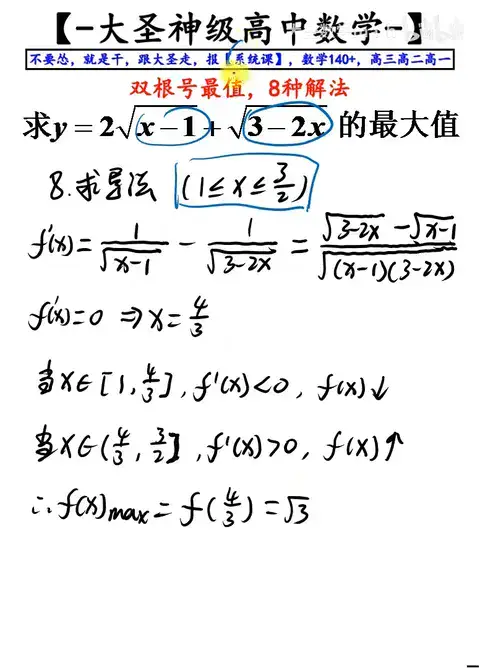 【-大圣神级高中数学-】
不要怂，就是干，跟大圣走，报【系统课】，数学140+，高三高二高一
双根号最值，8种解法
求y=2√(x-1)+√(3-2x)的最大值
8.求导法 (1≤x≤3/2)
f'(x)=1/√(x-1) - 1/√(3-2x) = (√(3-2x) - √(x-1))/√((x-1)(3-2x))
f'(x)=0 ⇒x=4/3
当x∈[1,4/3],f'(x)<0,f(x)↓
当x∈(4/3,3/2],f'(x)>0,f(x)↑
∴f(x)max=f(4/3)=√3